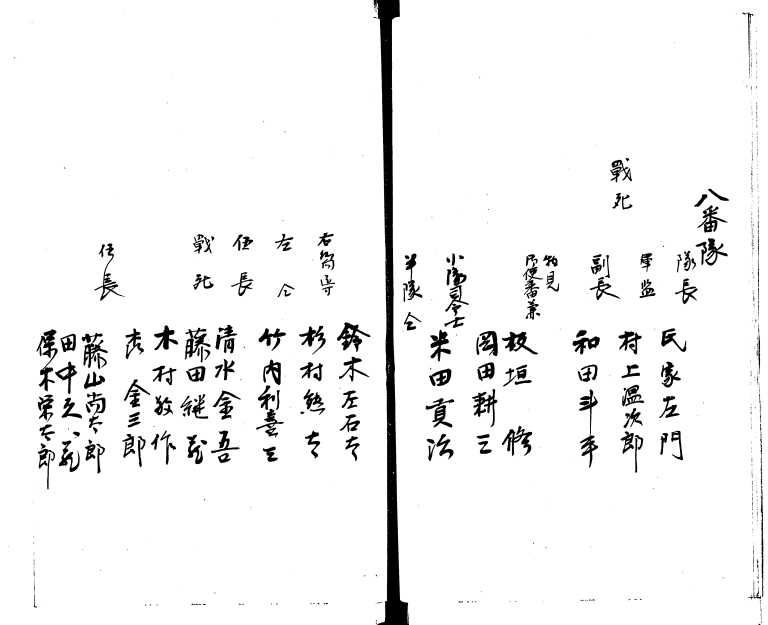 八番隊
隊長 氏家左門
軍監 村上温次郎
戰死 副長 和田斗平
物見
使番兼 板垣修
岡田耕三
小隊司令士 米田貢治
半隊仝
鈴木左右
右嚮導 杉村熊
左仝 竹内利喜
伍長 清水金吾
戰死 藤田継蔵
木村敬作
金三郎
伍長 藤山尚太郎
田中久蔵
保木栄太郎